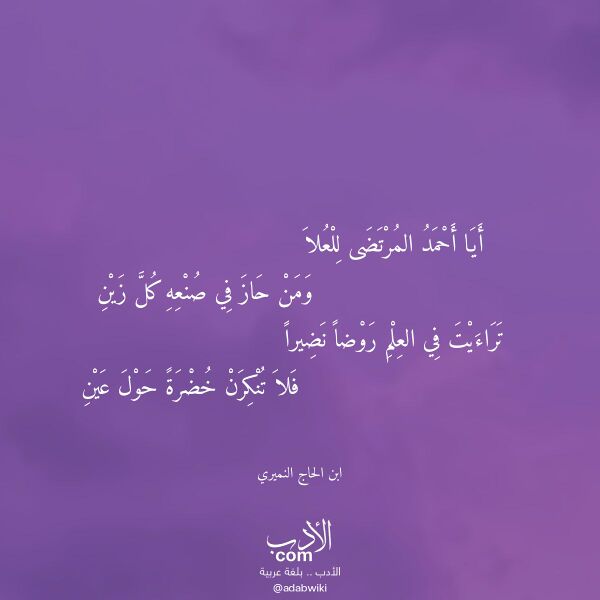 أَيَا أَحْمَدُ المُرْتَضَى لِلْعُلاَ
وَمَنْ حَازَ فِي صُنْعِهِ كُلَّ زَيْنِ
تَرَاءَيْتَ فِي العِلْمِ رَوْضاً نَضِيراً
فَلاَ تُنْكِرَنْ خُضْرَةً حَوْلَ عَيْنِ
ابن الحاج النميري
الأدب
com
الأدب .. بلغة عربية
@adabwiki